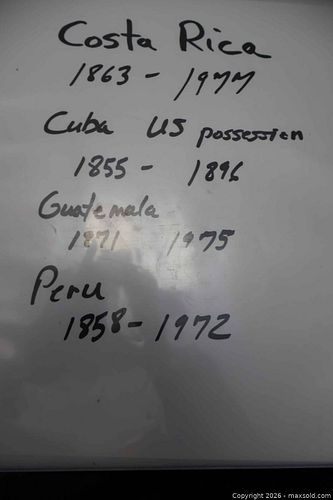 Costa Rica
1863 - 1977
Cuba US possession
1855 - 1896
Guatemala
1871 1975
Peru
1858 - 1972
Copyright 2026 - maxsold.com